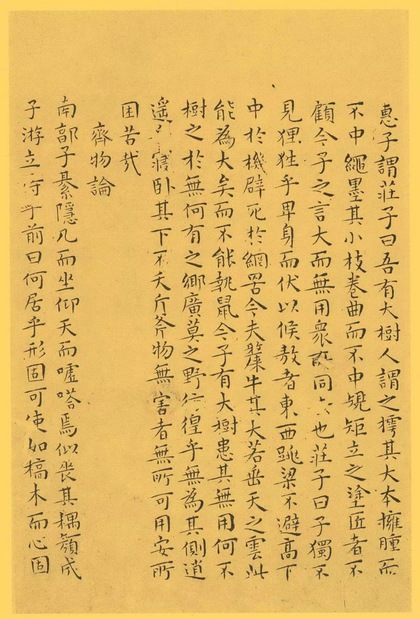 惠子謂莊子曰吾有大樹人謂之樗其大本擁腫而
不中繩墨其小枝卷曲而不中規矩立之塗匠者不
顧今子之言大而無用衆所同去也莊子曰子獨不
見狸狌乎卑身而伏以候敖者東西跳梁不避高下
中於機辟死於網罟今夫斄牛其大若垂天之雲此
能為大矣而不能執鼠今子有大樹患其無用何不
樹之於無何有之鄉廣莫之野彷徨乎無為其側逍
遥寢卧其下不夭斤斧物無害者無所可用安所
困苦哉
齊物論
南郭子綦隱几而坐仰天而噓嗒焉似喪其耦顏成
子游立侍乎前曰何居乎形固可使如槁木而心固